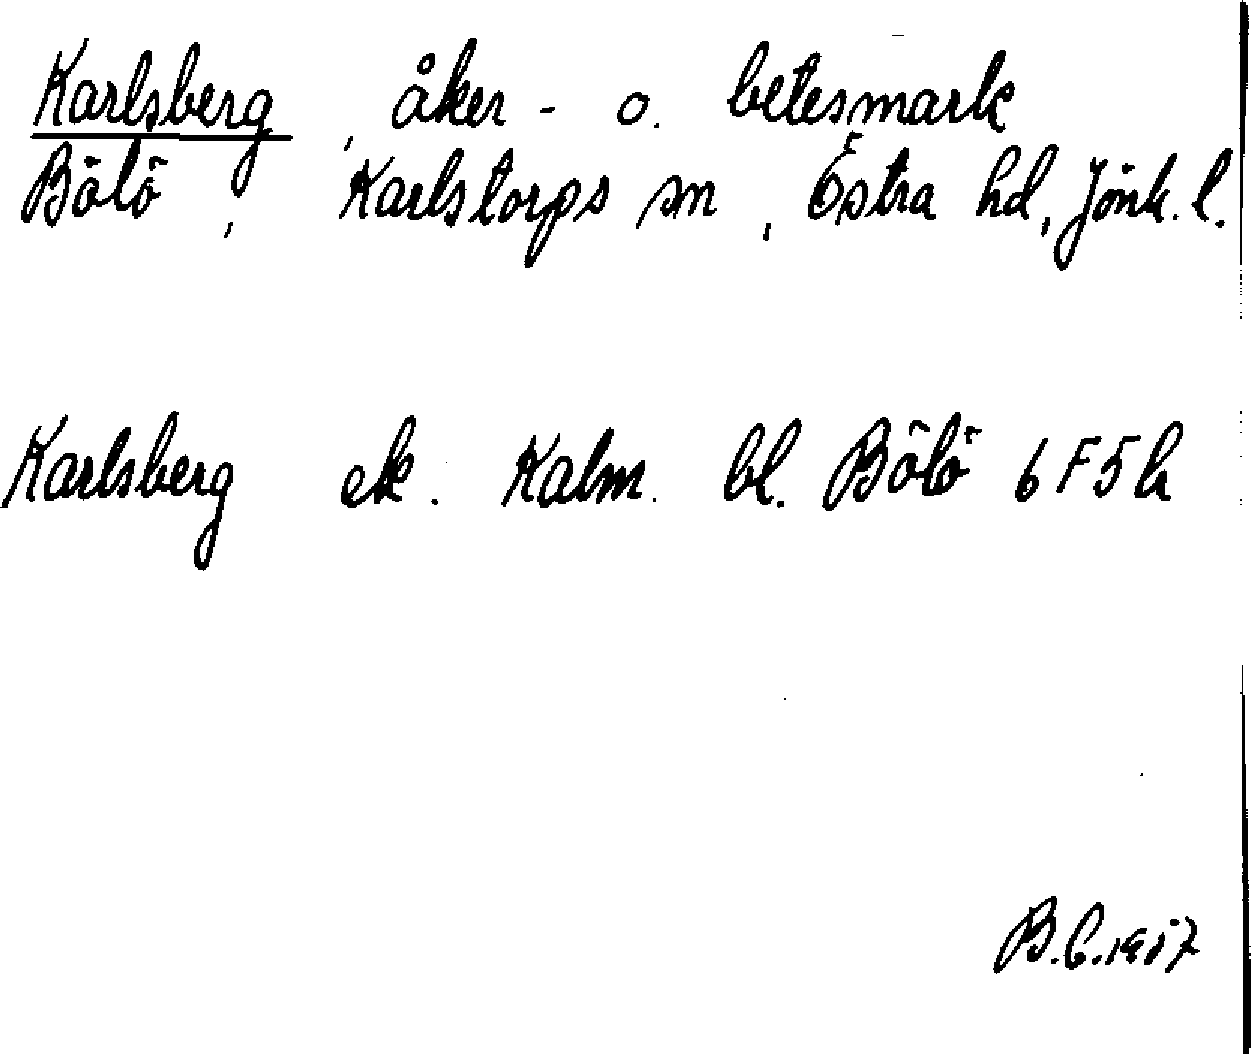 Karlsberg, åker- o. betesmark
Bölö, Karlstorps sn, Östra hd, Jönk. l.
Karlsberg ek. Kalm. bl. Bölö 6F5h
B.C. 1957